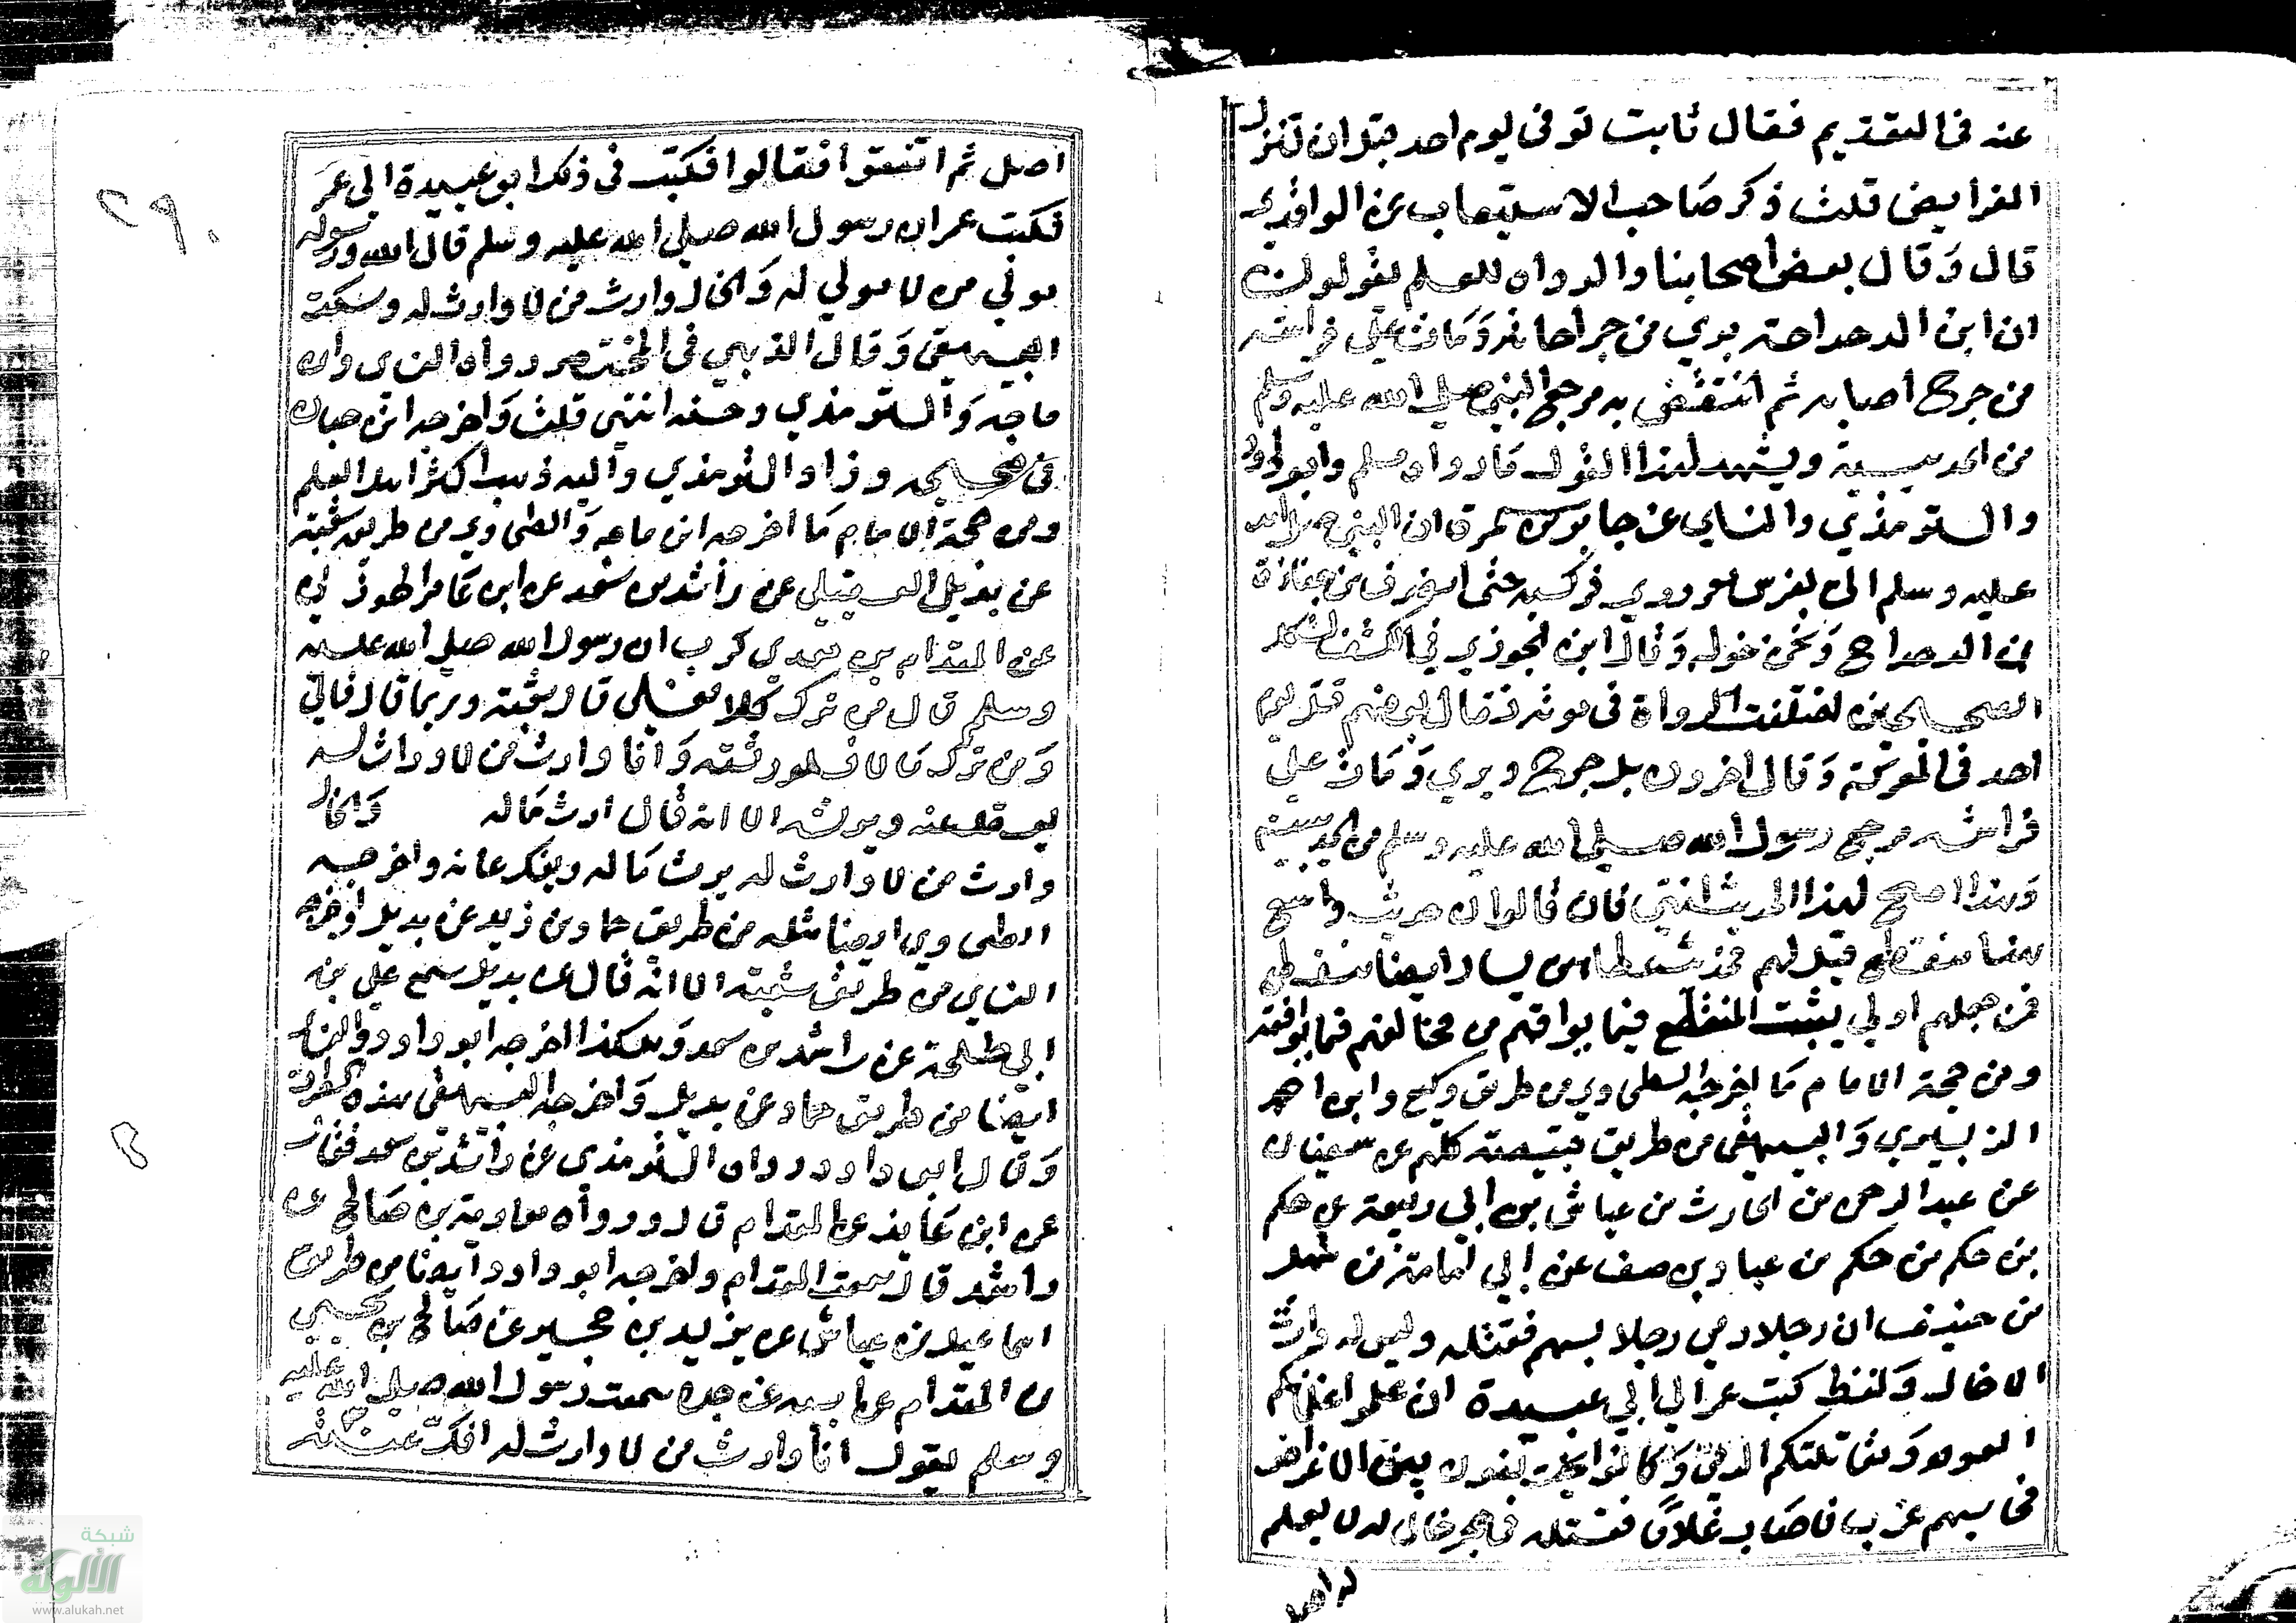 عنه فى القديم فقال ثابت توفى يوم احد قبل ان تنزل
الفرايض قلت ذكر صاحب الاستيعاب عن الواقدي
قال وقال بعض اصحابنا والرواه للعلم يقولون
ان ابن الدحداحة بري من جراحاته ومات على فراشه
من جرح اصابه ثم انتقض به مرجع النبي صلى الله عليه وسلم
من الحديبية ويشهد لهذا القول ما رواه مسلم وابو داود
والترمذي والنساي عن جابر بن سمرة ان النبي صلى الله
عليه وسلم اتى بفرس معروري فركبه حتى انصرف من جنازة
ابن الدحداح ونحن حوله وقال ابن الجوزي في الكشف لمشكل
الصحيحين اختلفت الرواة فى موته فقال بعضهم قتل يوم
احد فى المعركة وقال اخرون بل جرح وبري ومات على
فراشه مرجع رسول الله صلى الله عليه وسلم من الحديبية
وهذا اصح لهذا الحديث انتهى فان قالوا ان حديث واسع
هذا منقطع قيل لهم فحديث عطا بن يسار ايضا منقطع
فمن جعلهم اولي يثبت المنقطع فيما يوافقهم من مخالفهم فيما يوافقه
ومن حجة الامام ما اخرجه الطحاوي من طريق وكيع وابى احمد
الزبيري والبيهقى من طريق قبيصة كلهم عن سفيان
عن عبد الرحمن بن الحارث بن عياش بن ابي ربيعة عن حكم
بن حكيم بن عباد بن حنيف عن ابي امامة بن سهل
بن حنيف ان رجلا رمى رجلا بسهم فقتله وليس له وارث
الا خال ولفظ كتب عمر الي ابي عبيدة ان علموا غلمانكم
العوم ومقاتلتكم الرمى وكانوا يختلفون بين الاغراض
فجا سهم غرب فاصاب غلاما فقتله فى حجر خال له لا يعلم
له اصل
اصل ثم اتفقوا فقالوا فكتب فى ذلك ابو عبيدة الى عمر
فكتب عمر ان رسول الله صلى الله عليه وسلم قال الله ورسوله
مولي من لا مولي له والخال وارث من لا وارث له وسكت
البيهقى وقال الذهبي فى المختصر رواه النساى وابن
ماجه والترمذي وحسنه انتهى قلت واخرجه ابن حبان
فى صحيحه وزاد الترمذي واليه ذهب اكثر اهل العلم
ومن حجة الامام ما اخرجه ابن ماجه والطحاوي من طريق شعبة
عن بديل العقيلى عن راشد بن سعد عن ابى عامر الهوزني
عن المقدام بن معدي كرب ان رسول الله صلى الله عليه
وسلم قال من ترك كلا فعلى قال شعبة وربما قال فالي
ومن ترك مالا فلورثته وانا وارث من لا وارث له
يعقل عنه ويرثه الا انه قال ارث ماله والخال
وارث من لا وارث له يرث ماله ويفك عانه واخرجه
الطحاوي ايضا مثله من طريق حماد بن زيد عن بديل اخرجه
النساى من طريق شعبة الا انه قال عن بديل سمع علي بن
ابي طلحة عن راشد بن سعد وهكذا اخرجه ابو داود والنسا
ايضا من طريق حماد عن بديل واخرجه البيهقى بهذه الطرق
وقال ابى داود رواه الترمذي عن راشد بن سعد فقال
عن ابن عايذ عن المقدام قال ورواه معاوية بن صالح عن
راشد قال سمعت المقدام واخرجه ابو داود ايضا من طريق
اسماعيل بن عياش عن يزيد بن حجير عن صالح بن يحيى
بن المقدام عن ابيه عن جده سمعت رسول الله صلى الله عليه
وسلم يقول انا وارث من لا وارث له افك عنيه
٢٩٠
شبكة
الألوكة
www.alukah.net